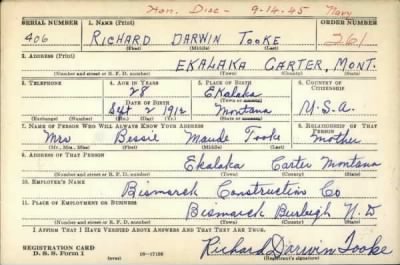 Hon. Disc - 9-14-45 Navy
SERIAL NUMBER 1. NAME (Print) ORDER NUMBER
406 RICHARD DARWIN TOOKE 261
(First) (Middle) (Last)
2. ADDRESS (Print)
EKALAKA CARTER, MONT.
(Number and street or R. F. D. number) (Town) (County) (State)
3. TELEPHONE 4. AGE IN YEARS 5. PLACE OF BIRTH 6. COUNTRY OF CITIZENSHIP
28 Ekalaka
DATE OF BIRTH (Town or county)
Sept 2 1912 Montana U.S.A.
(Exchange) (Number) (Mo.) (Day) (Yr.) (State or country)
7. NAME OF PERSON WHO WILL ALWAYS KNOW YOUR ADDRESS 8. RELATIONSHIP OF THAT PERSON
Mrs Bessie Maude Tooke Mother
(Mr., Mrs., Miss) (First) (Middle) (Last)
9. ADDRESS OF THAT PERSON
Ekalaka Carter Montana
(Number and street or R. F. D. number) (Town) (County) (State)
10. EMPLOYER'S NAME
Bismarck Construction Co
11. PLACE OF EMPLOYMENT OR BUSINESS
Bismarck Burleigh N.D
(Number and street or R. F. D. number) (Town) (County) (State)
I AFFIRM THAT I HAVE VERIFIED ABOVE ANSWERS AND THAT THEY ARE TRUE.
REGISTRATION CARD
D. S. S. Form 1 (over) 16-17105 Richard Darwin Tooke
(Registrant's signature)